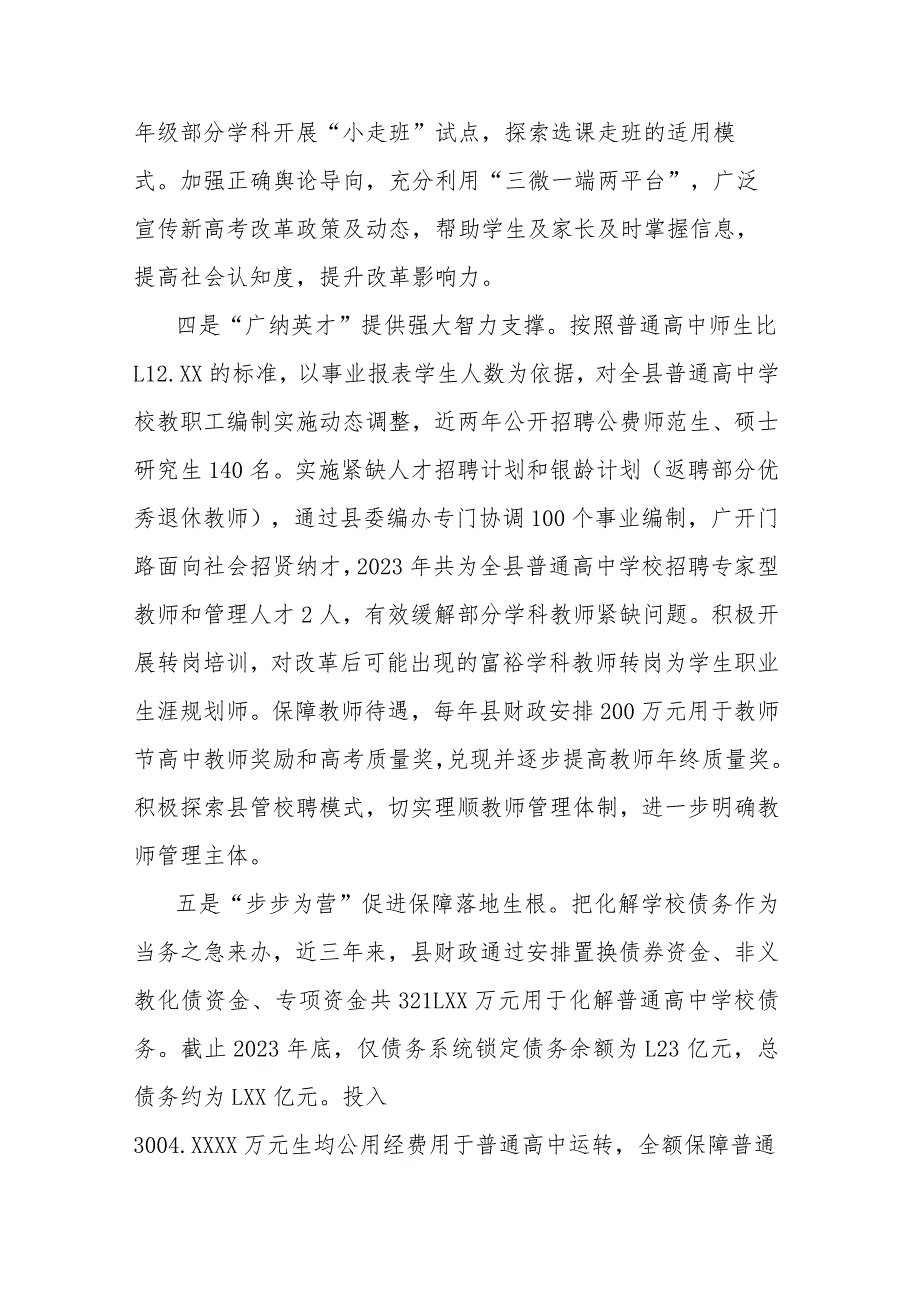 年级部分学科开展“小走班”试点，探索选课走班的适用模
式。加强正确舆论导向，充分利用“三微一端两平台”，广泛
宣传新高考改革政策及动态，帮助学生及家长及时掌握信息，
提高社会认知度，提升改革影响力。
四是“广纳英才”提供强大智力支撑。按照普通高中师生比
L12.XX的标准，以事业报表学生人数为依据，对全县普通高中学
校教职工编制实施动态调整，近两年公开招聘公费师范生、硕士
研究生140名。实施紧缺人才招聘计划和银龄计划（返聘部分优
秀退休教师），通过县委编办专门协调100个事业编制，广开门
路面向社会招贤纳才，2023年共为全县普通高中学校招聘专家型
教师和管理人才2人，有效缓解部分学科教师紧缺问题。积极开
展转岗培训，对改革后可能出现的富裕学科教师转岗为学生职业
生涯规划师。保障教师待遇，每年县财政安排200万元用于教师
节高中教师奖励和高考质量奖，兑现并逐步提高教师年终质量奖。
积极探索县管校聘模式，切实理顺教师管理体制，进一步明确教
师管理主体。
五是“步步为营”促进保障落地生根。把化解学校债务作为
当务之急来办，近三年来，县财政通过安排置换债券资金、非义
教化债资金、专项资金共321LXX万元用于化解普通高中学校债
务。截止2023年底，仅债务系统锁定债务余额为L23亿元，总
债务约为LXX亿元。投入
3004.XXXX万元生均公用经费用于普通高中运转，全额保障普通